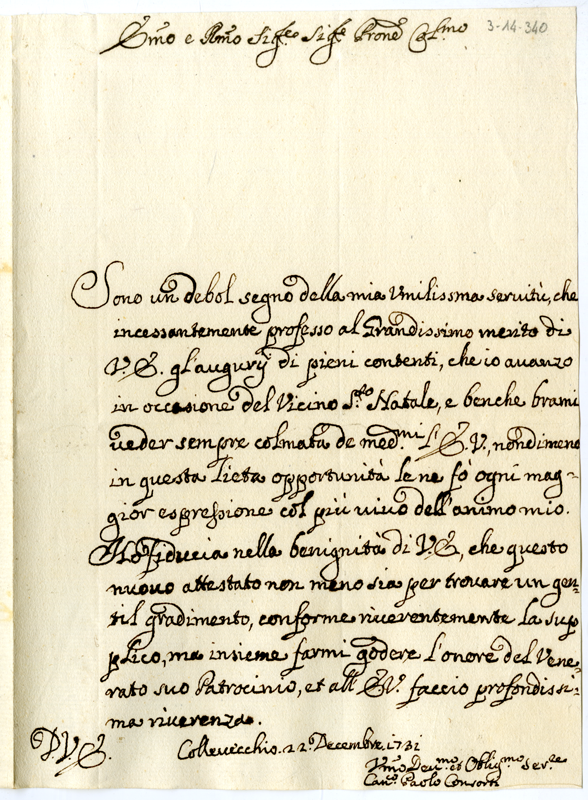 3-14-340
Emo e Rmo Sig.re Sig.re Prone Col.mo
Sono un debol segno della mia Vmilissma servitù, che
incessantemente professo al Grandissimo merito di
V.E. gl'augurij di pieni contenti, che io avanzo
in occasione del Vicino S.to Natale, e benche brami
veder sempre colmata de med.mi l'E.V., nondimeno
in questa lieta opportunità le ne fò ogni mag-
gior espressione col più vivo dell'animo mio.
Hò fiducia nella benignità di V.E., che questo
nuovo attestato non meno sia per trovare un gen-
til gradimento, conforme riverentemente la sup
plico, ma insieme farmi godere l'onore del Vene-
rato suo Patrocinio, et all'E.V. faccio profondissi-
ma riverenza.
D.V.E.
Collevecchio 22 Decembre 1731
Vmo Dev.mo et Oblig.mo Ser.re
Can.co Paolo Consorti